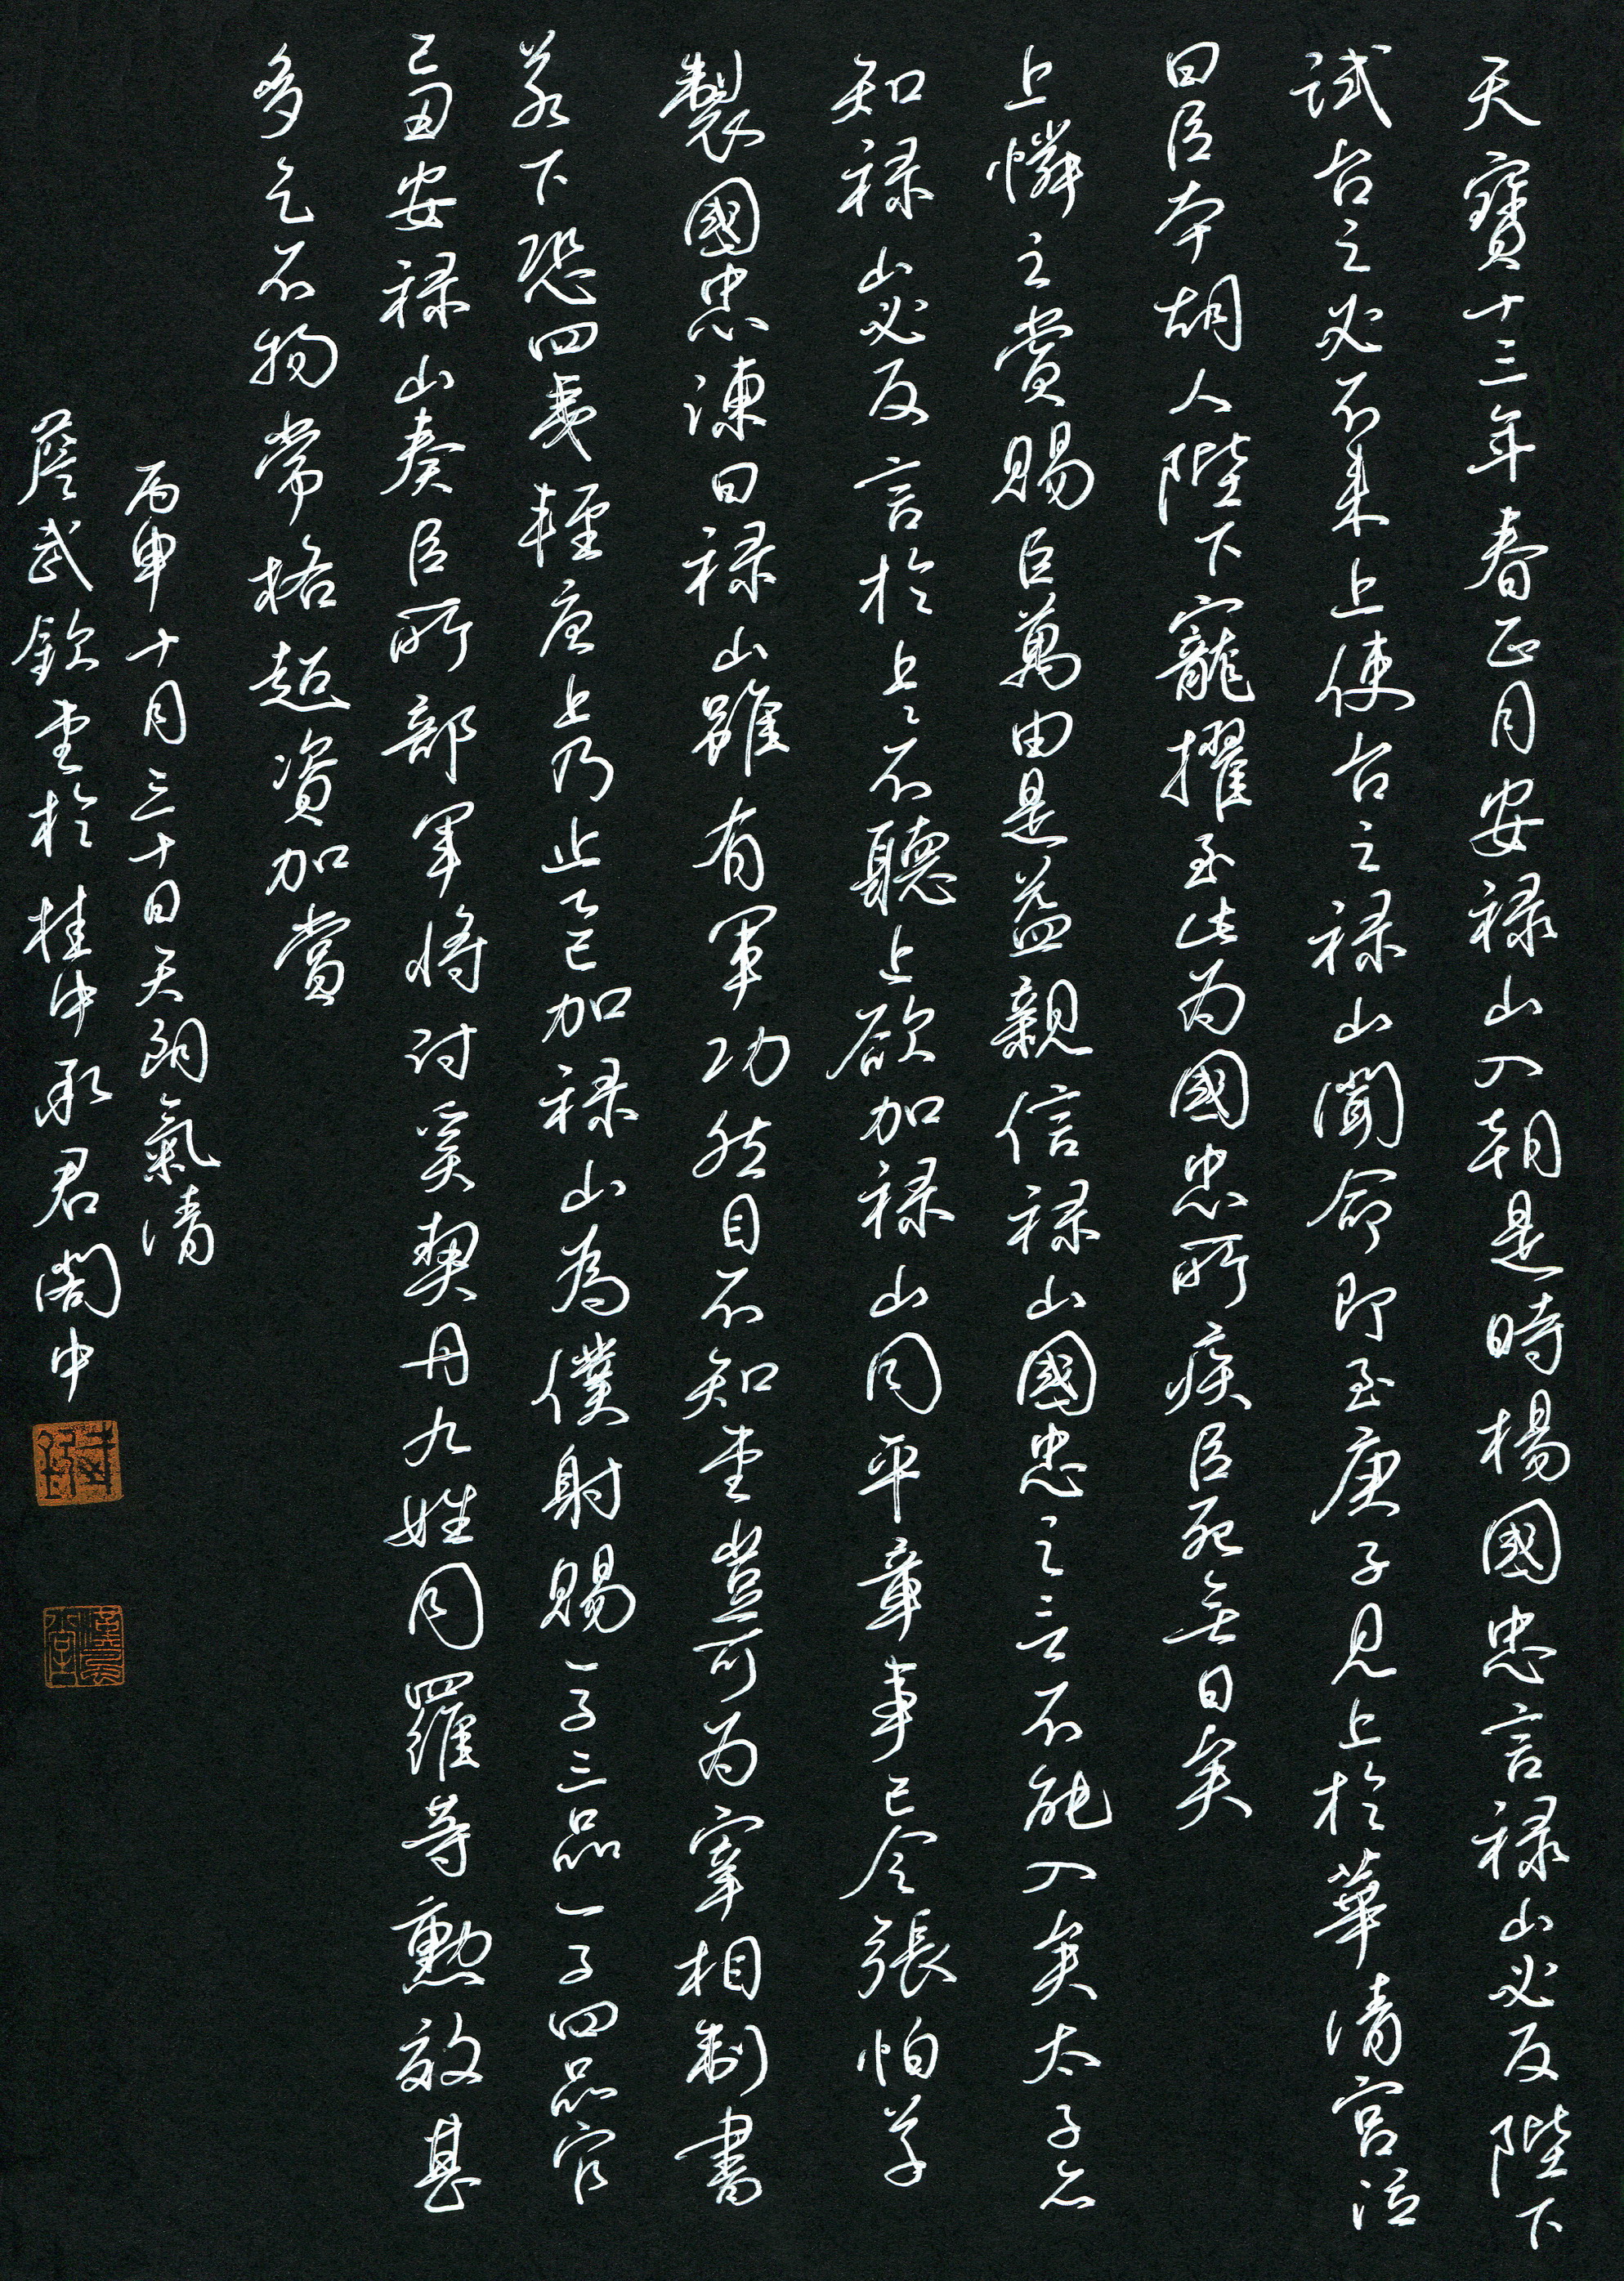 天寶十三年春正月安禄山入朝是時楊國忠言禄山必反陛下
試召之必不来上使召之禄山聞命即至庚子見上於華清宮泣
曰臣本胡人陛下寵擢至此为國忠所疾臣死無日矣
上憐之賞賜巨萬由是益親信禄山國忠之言不能入矣太子亦
知禄山必反言於上上不聽上欲加禄山同平章事已令張怕草
製國忠諫曰禄山雖有軍功然目不知書豈可为宰相制書
若下恐四夷輕唐上乃止乙巳加禄山為僕射賜一子三品一子四品官
己丑安禄山奏臣所部军将討奚契丹九姓同羅等勳效甚
多乞不拘常格超资加賞
丙申十月三十日天朗氣清
詹武欽書於桂中承君閣中